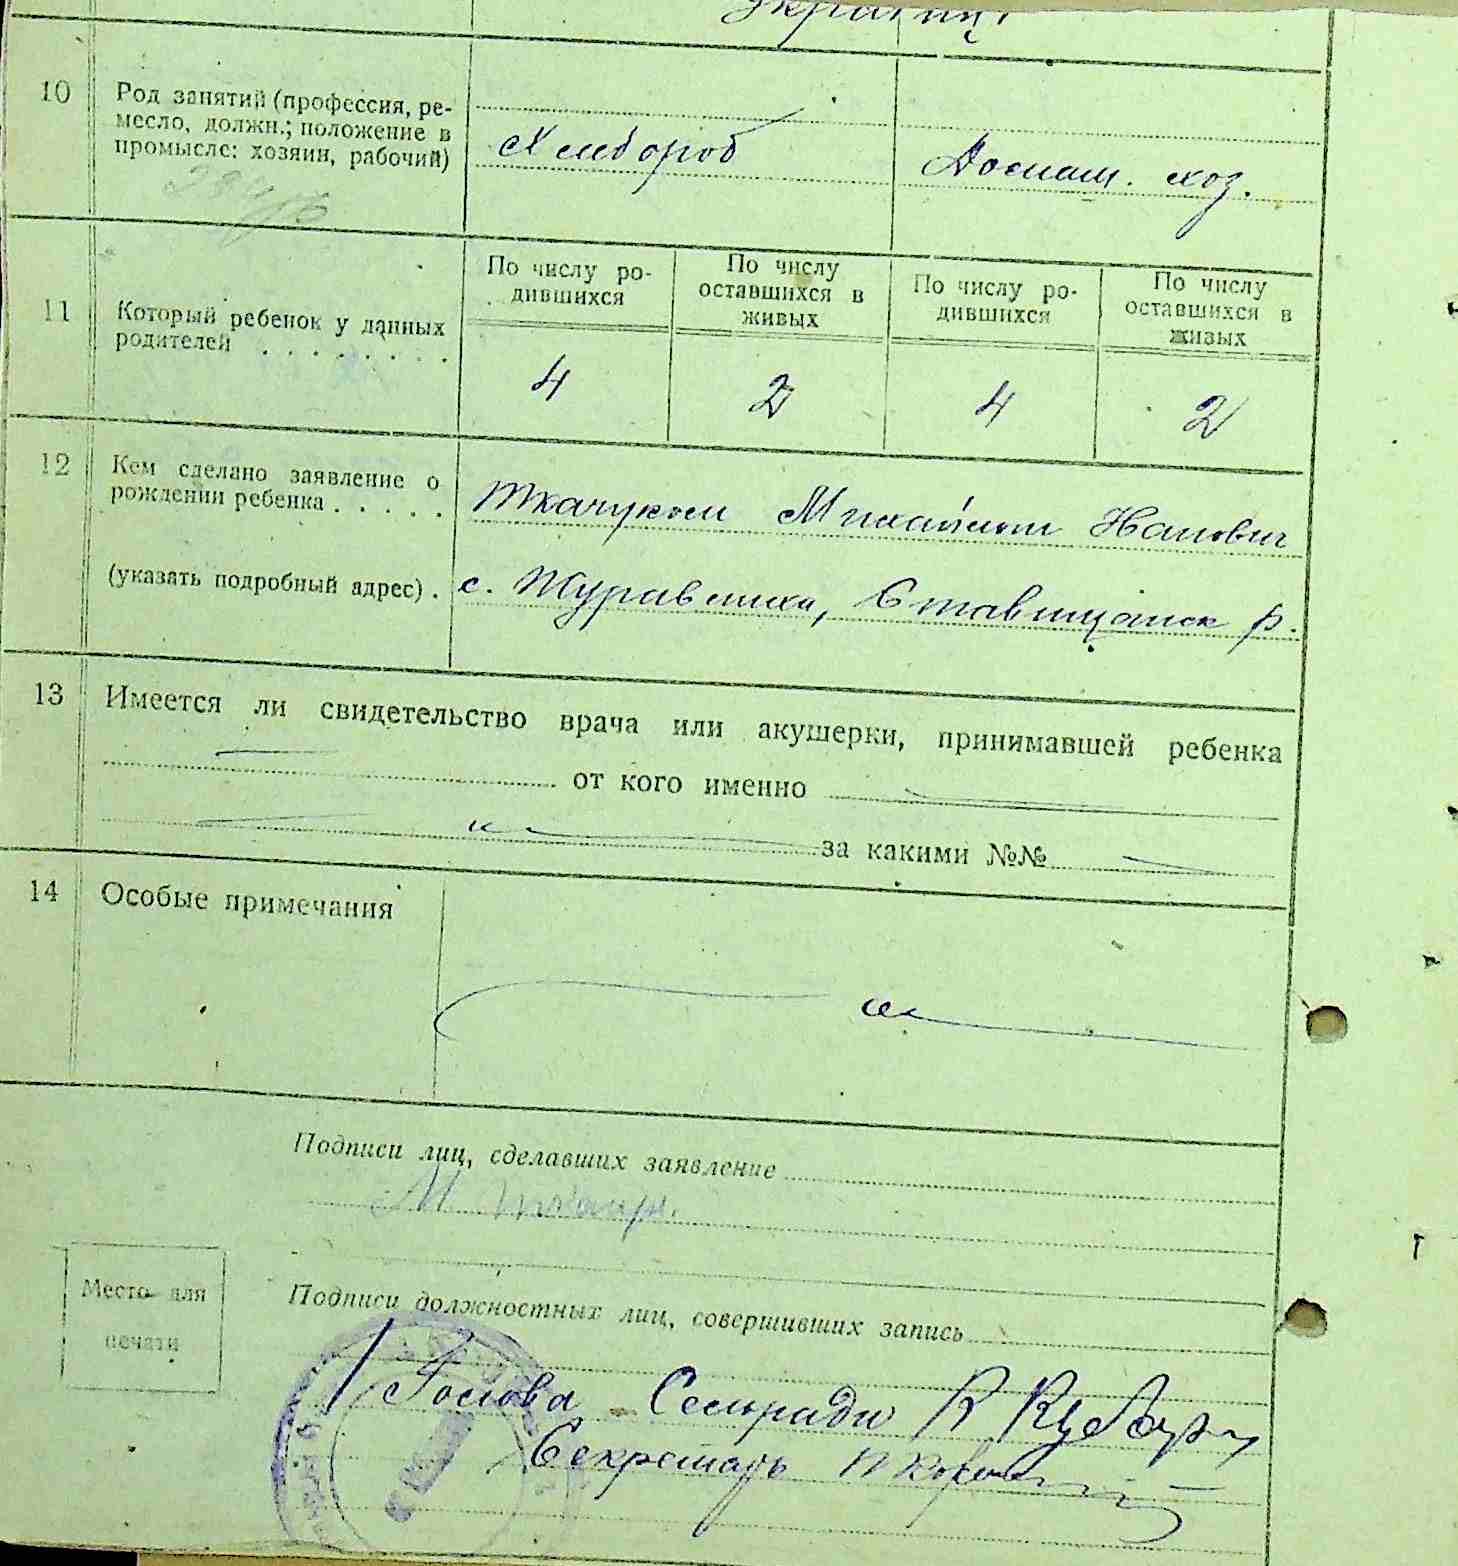 10 Род занятий (профессия, ре-
месло, должн.; положение в
промысле: хозяин, рабочий)
Хлебороб
Домаш. хоз.
11 Который ребенок у данных
родителей . . . . . . . .
По числу ро-
дившихся
По числу
оставшихся в
живых
По числу ро-
дившихся
По числу
оставшихся в
живых
4 2 4 2
12 Кем сделано заявление о
рождении ребенка . . . . .
Ткачуком Михайлом
(указать подробный адрес) .
с. Журавлиха, Ставищанск р.
13 Имеется ли свидетельство врача или акушерки, принимавшей ребенка
от кого именно
за какими №№
14 Особые примечания
Подписи лиц, сделавших заявление
Место для
печати
Подписи должностных лиц, совершивших запись
Голова Сельради К
Секретарь